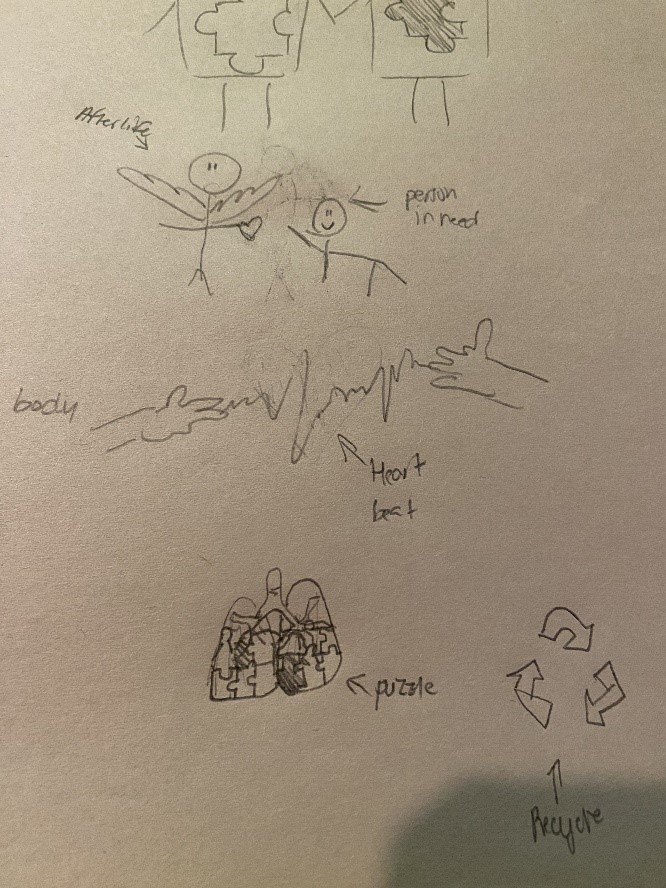 Afterlife
person
in need
body
Heart
beat
puzzle
Recycle